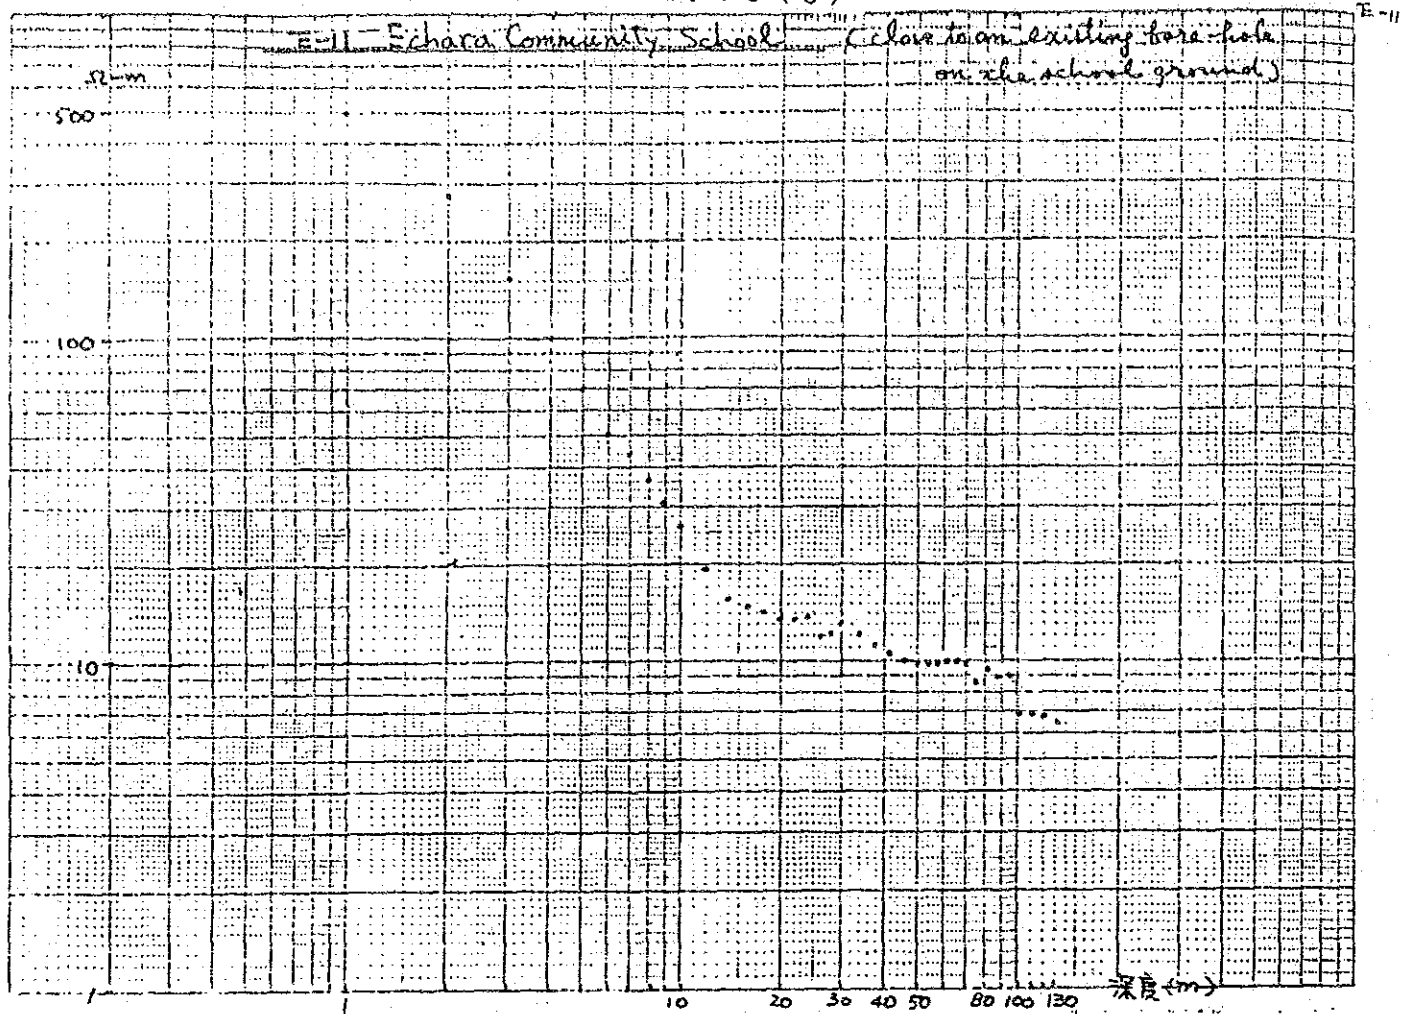 E-11
E-11 Echara Community School (close to an existing bore-hole
on the school ground)
Ω-m
500
100
10
1
1 10 20 30 40 50 80 100 130 深度(m)